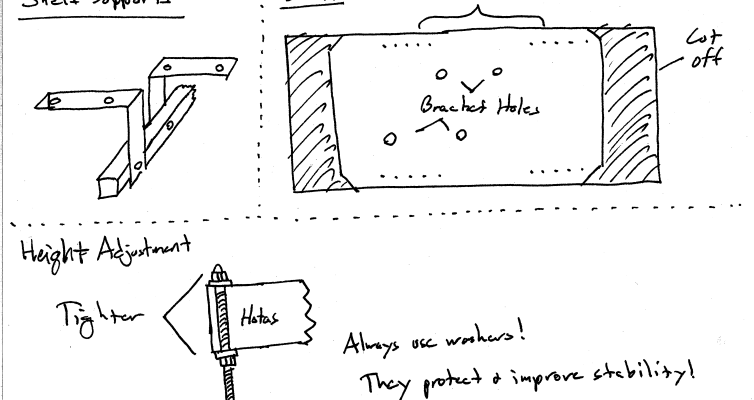 Shelf Supports
Cut
off
Bracket Holes
Height Adjustment
Tighter
Always use washers!
They protect & improve stability!